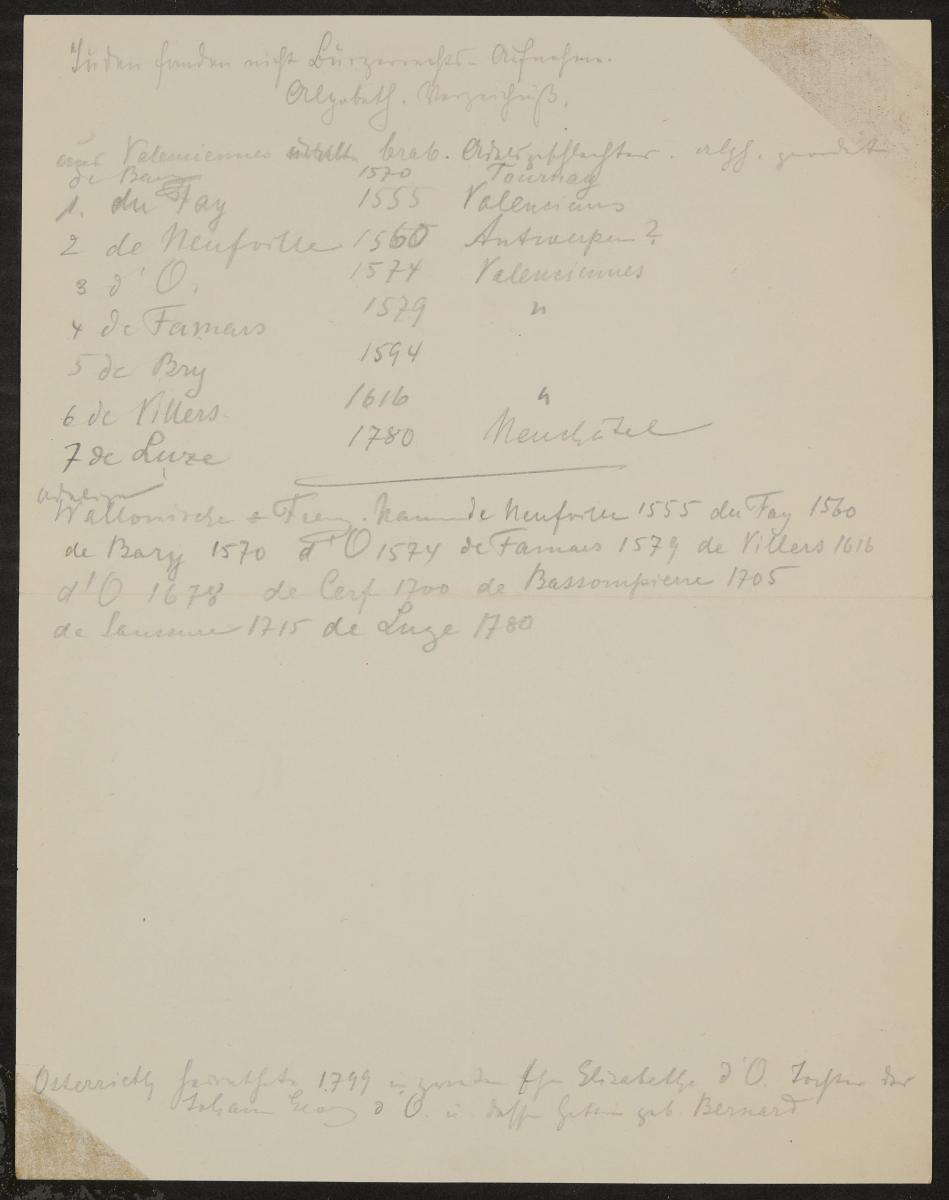 Juden fanden nicht Bürgerrechts-Aufnahme.
Alphabeth. Verzeichniß.
aus Valenciennes brab. Adelsgeschlechter. alph. geordnet
de Bary 1570 Tournay
1. du Fay 1555 Valenciens
2 de Neufville 1560 Antwerpen?
3 d'O. 1574 Valenciennes
4 de Famars 1579 "
5 de Bry 1594
6 de Villers 1616 "
7 de Luze 1780 Neuchâtel
adelige
Wallonische & Franz. de Neufville 1555 du Fay 1560
de Bary 1570 d'O 1574 de Famars 1579 de Villers 1616
d'O 1678 de Cerf 1700 de Bassompierre 1705
de Saussure 1715 de Luze 1780
Osterrieth heirathete 1799 in Ehe Elisabethe d'O. Tochter des
Johann Georg d'O. u. dessen Gattin geb. Bernard